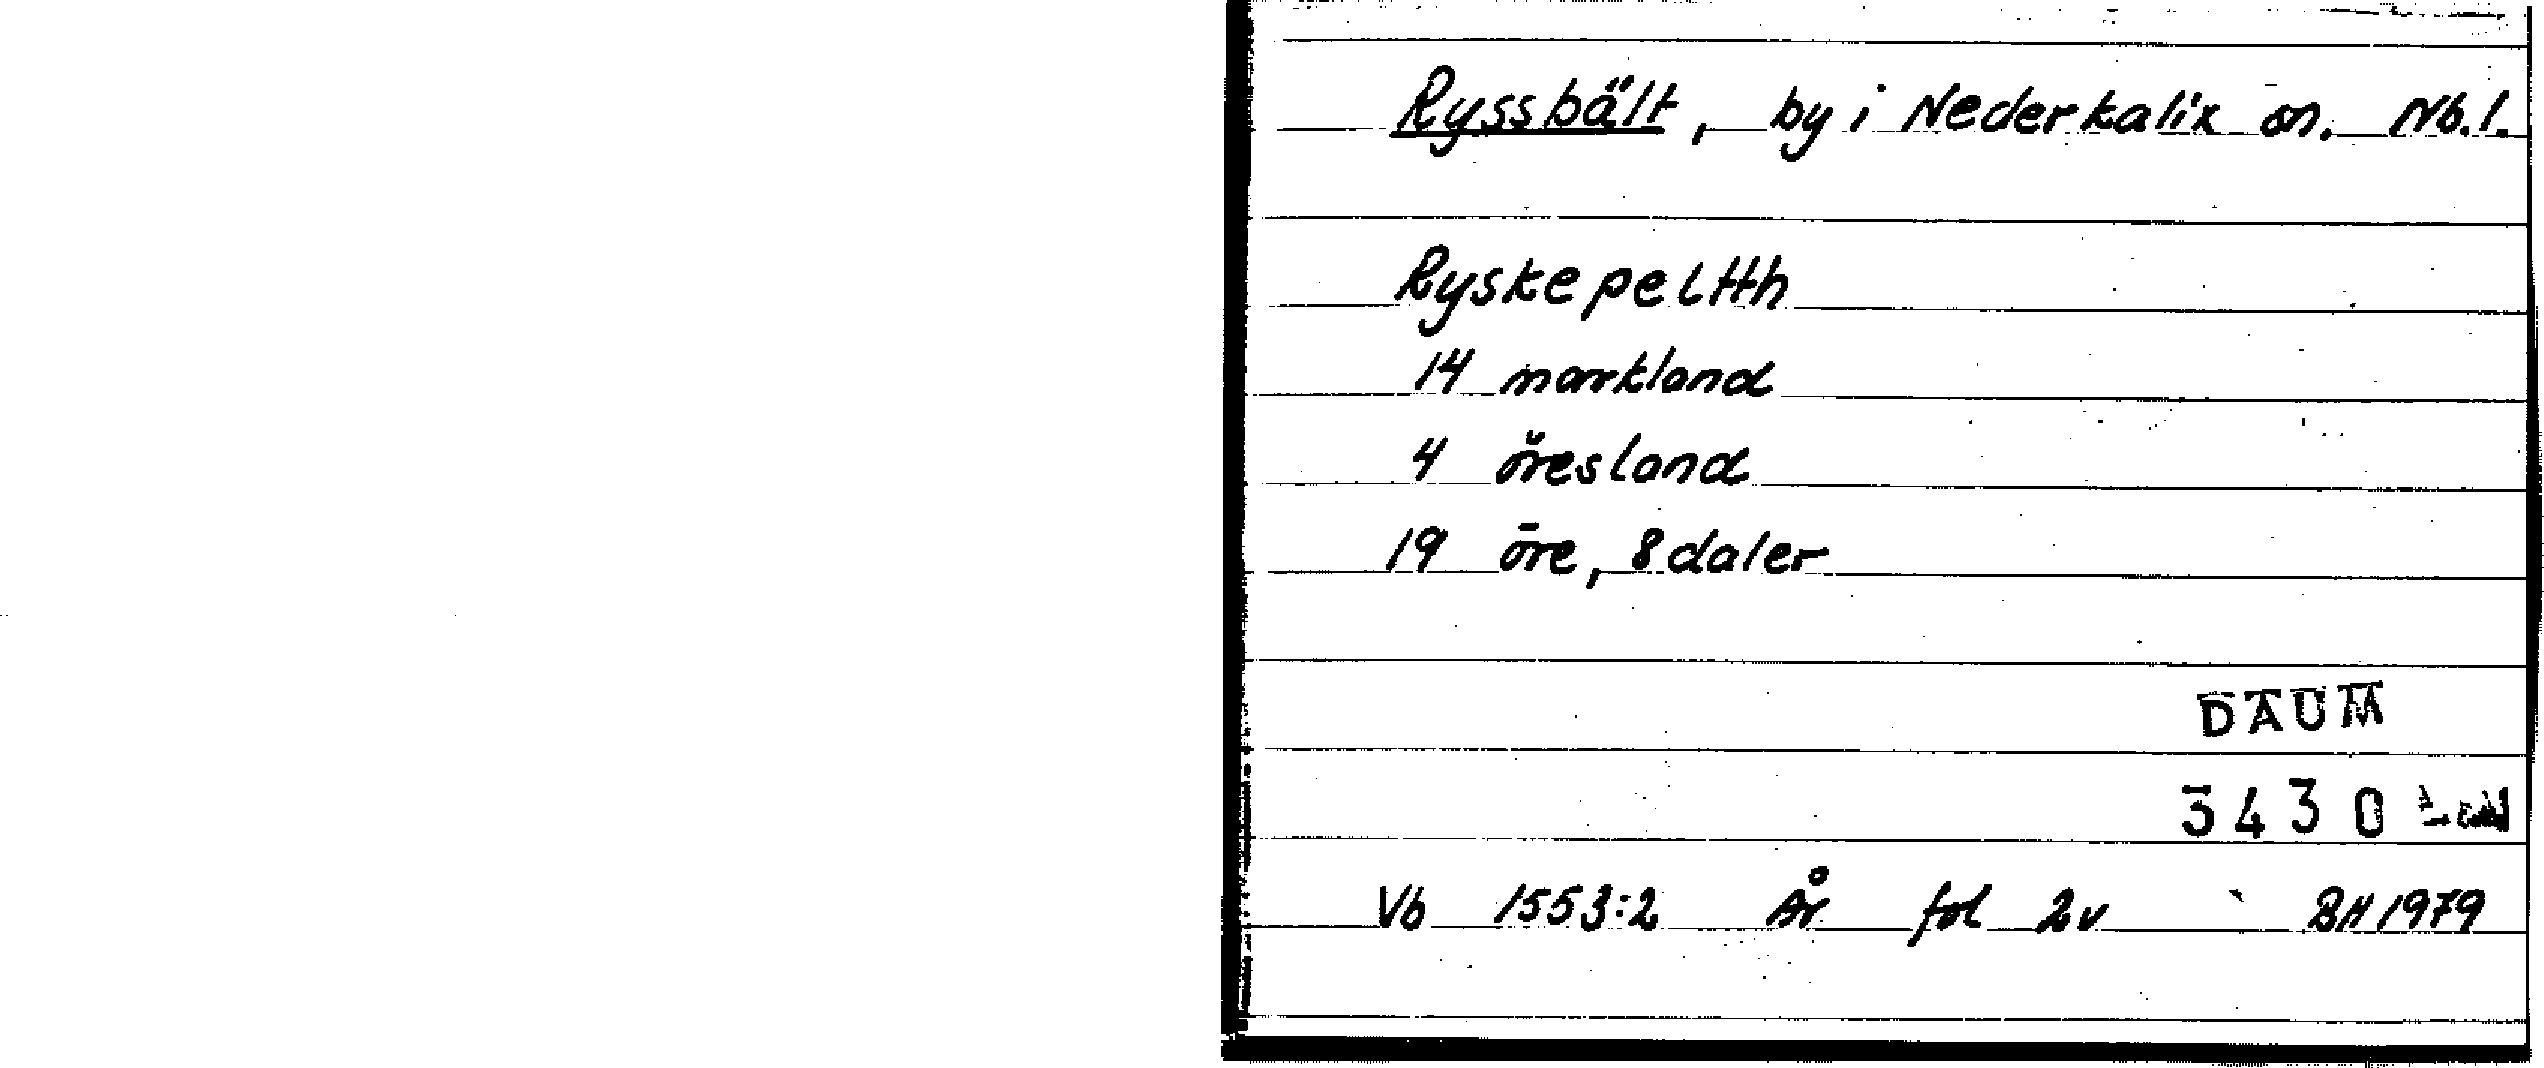 Ryssbält, by i Nederkalix sn. Nb.l.
Ryskepeltth
14 markland
4 öresland
19 öre, 8 daler
DAUM
3430
Vb 1553:2 År fol 2v BH 1979